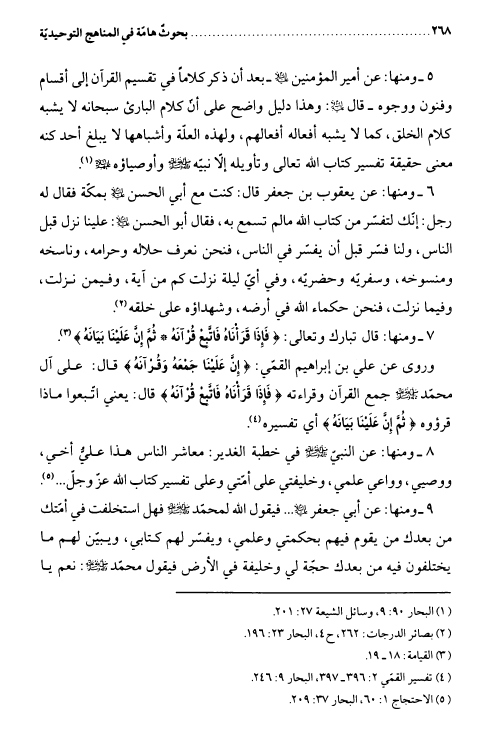 ٢٦٨ ........................................ بحوثٌ هامّة في المناهج التوحيديّة
٥ ـ ومنها: عن أمير المؤمنين ﵇ ـ بعد أن ذكر كلاماً في تقسيم القرآن إلى أقسام
وفنون ووجوه ـ قال ﵇: وهذا دليل واضح على أنّ كلام البارئ سبحانه لا يشبه
كلام الخلق، كما لا يشبه أفعاله أفعالهم، ولهذه العلّة وأشباهها لا يبلغ أحد كنه
معنى حقيقة تفسير كتاب الله تعالى وتأويله إلّا نبيّه ﷺ وأوصياؤه ﵈ (١).
٦ ـ ومنها: عن يعقوب بن جعفر قال: كنت مع أبي الحسن ﵇ بمكّة فقال له
رجل: إنّك لتفسّر من كتاب الله مالم تسمع به، فقال أبو الحسن ﵇: علينا نزل قبل
الناس، ولنا فسّر قبل أن يفسّر في الناس، فنحن نعرف حلاله وحرامه، وناسخه
ومنسوخه، وسفريّه وحضريّه، وفي أيّ ليلة نزلت كم من آية، وفيمن نزلت،
وفيما نزلت، فنحن حكماء الله في أرضه، وشهداؤه على خلقه (٢).
٧ ـ ومنها: قال تبارك وتعالى: ﴿ فَإِذَا قَرَأْنَاهُ فَاتَّبِعْ قُرْآنَهُ * ثُمَّ إِنَّ عَلَيْنَا بَيَانَهُ ﴾ (٣).
وروى عن علي بن إبراهيم القمّي: ﴿ إِنَّ عَلَيْنَا جَمْعَهُ وَقُرْآنَهُ ﴾ قال: على آل
محمّد ﷺ جمع القرآن وقراءته ﴿ فَإِذَا قَرَأْنَاهُ فَاتَّبِعْ قُرْآنَهُ ﴾ قال: يعني اتّبعوا ماذا
قرؤوه ﴿ ثُمَّ إِنَّ عَلَيْنَا بَيَانَهُ ﴾ أي تفسيره (٤).
٨ ـ ومنها: عن النبيّ ﷺ في خطبة الغدير: معاشر الناس هذا عليٌّ أخي،
ووصيي، وواعي علمي، وخليفتي على أمّتي وعلى تفسير كتاب الله عزّ وجلّ... (٥).
٩ ـ ومنها: عن أبي جعفر ﵇... فيقول الله لمحمّد ﷺ فهل استخلفت في أمّتك
من بعدك من يقوم فيهم بحكمتي وعلمي، ويفسّر لهم كتابي، ويبيّن لهم ما
يختلفون فيه من بعدك حجّة لي وخليفة في الأرض فيقول محمّد ﷺ: نعم يا
(١) البحار ٩٠: ٩، وسائل الشيعة ٢٧: ٢٠١.
(٢) بصائر الدرجات: ٢٦٢، ح٤، البحار ٢٣: ١٩٦.
(٣) القيامة: ١٨ ـ ١٩.
(٤) تفسير القمّي ٢: ٣٩٦ ـ ٣٩٧، البحار ٩: ٢٤٦.
(٥) الاحتجاج ١: ٦٠، البحار ٣٧: ٢٠٩.